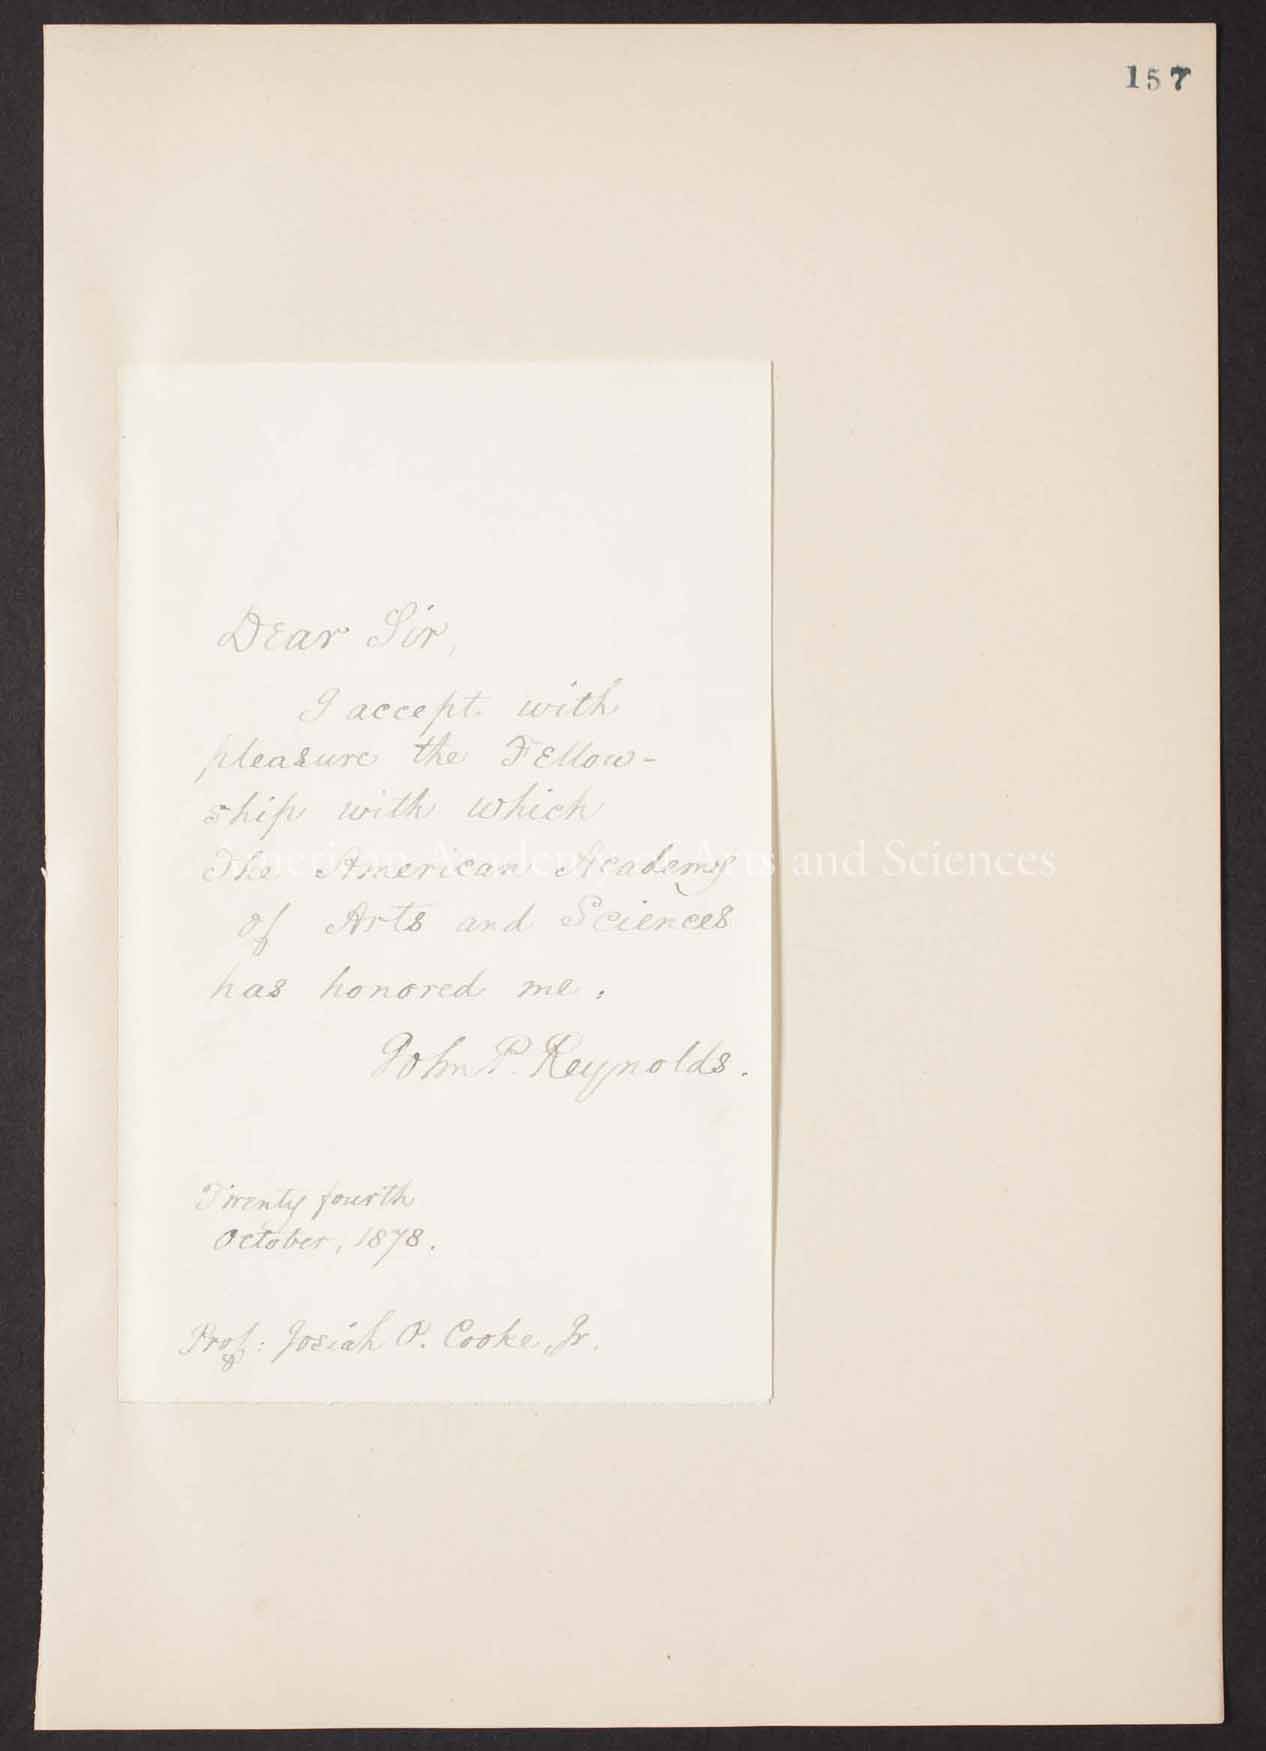 157
Dear Sir,
I accept with
pleasure the Fellow-
ship with which
The American Academy
of Arts and Sciences
has honored me.
John P. Reynolds.
Twenty fourth
October, 1878.
Prof: Josiah P. Cooke, Jr.
American Academy of Arts and Sciences